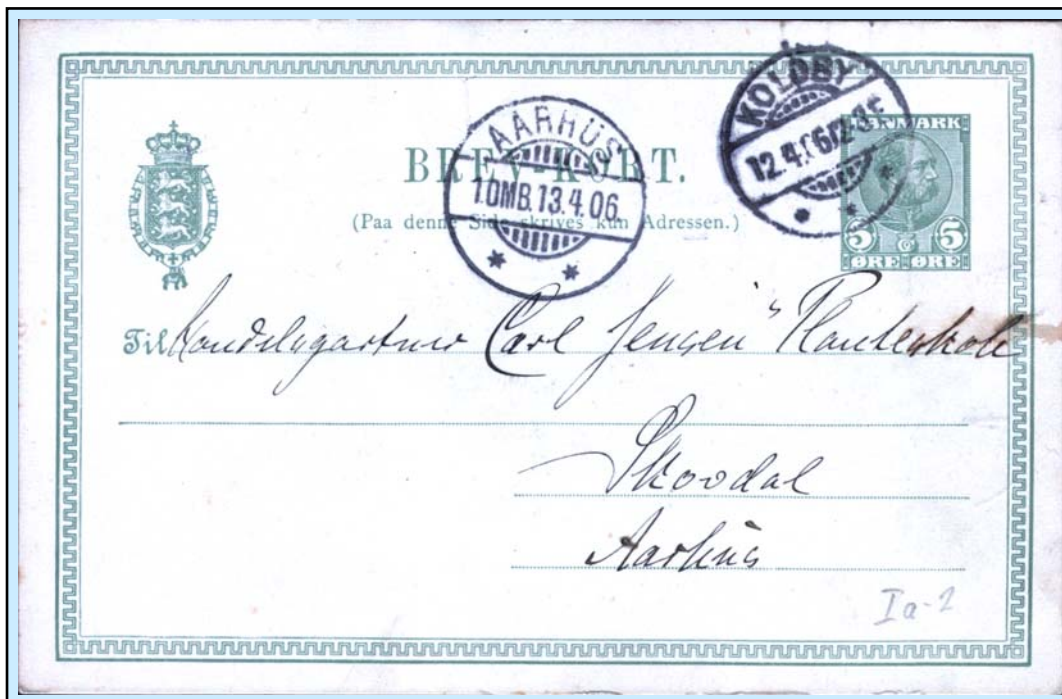 BREV-KORT.
(Paa denne Side skrives kun Adressen.)
AARHUS
1.OMB.13.4.06
KOLDBY
12.4.06
DANMARK
5 5
ØRE ØRE
Til Handelsgartner Carl Jensen" Planteskole
Skovdal
Aarhus
Ia-2